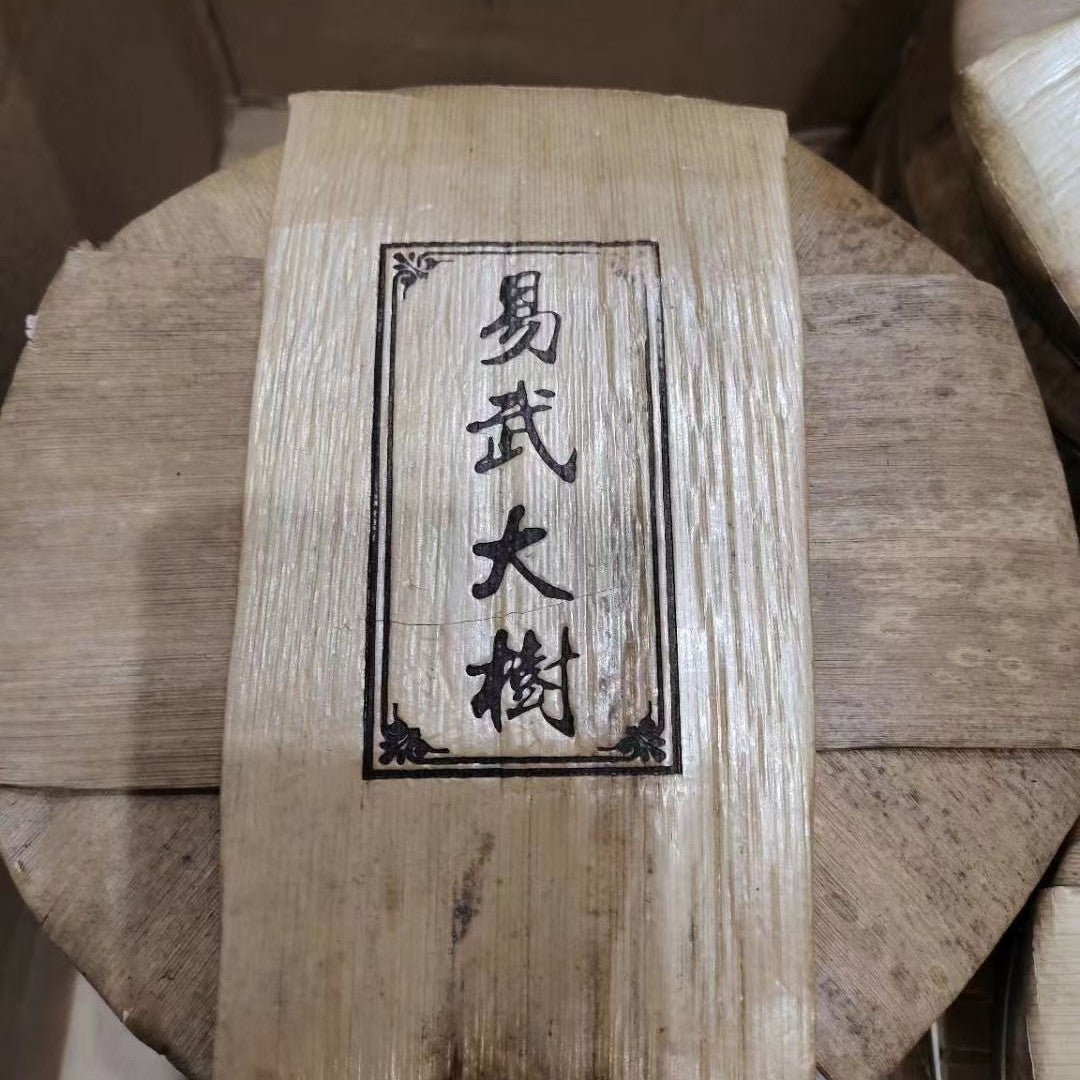 易武大樹